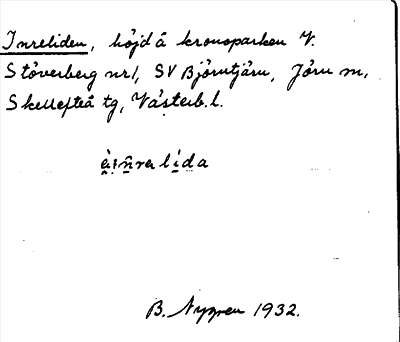 Inreliden, höjd å kronoparken V.
Stöverberg nr 1, SV Björntjärn, Jörn sn,
Skellefteå tg, Västerb. l.
B. Nygren 1932.